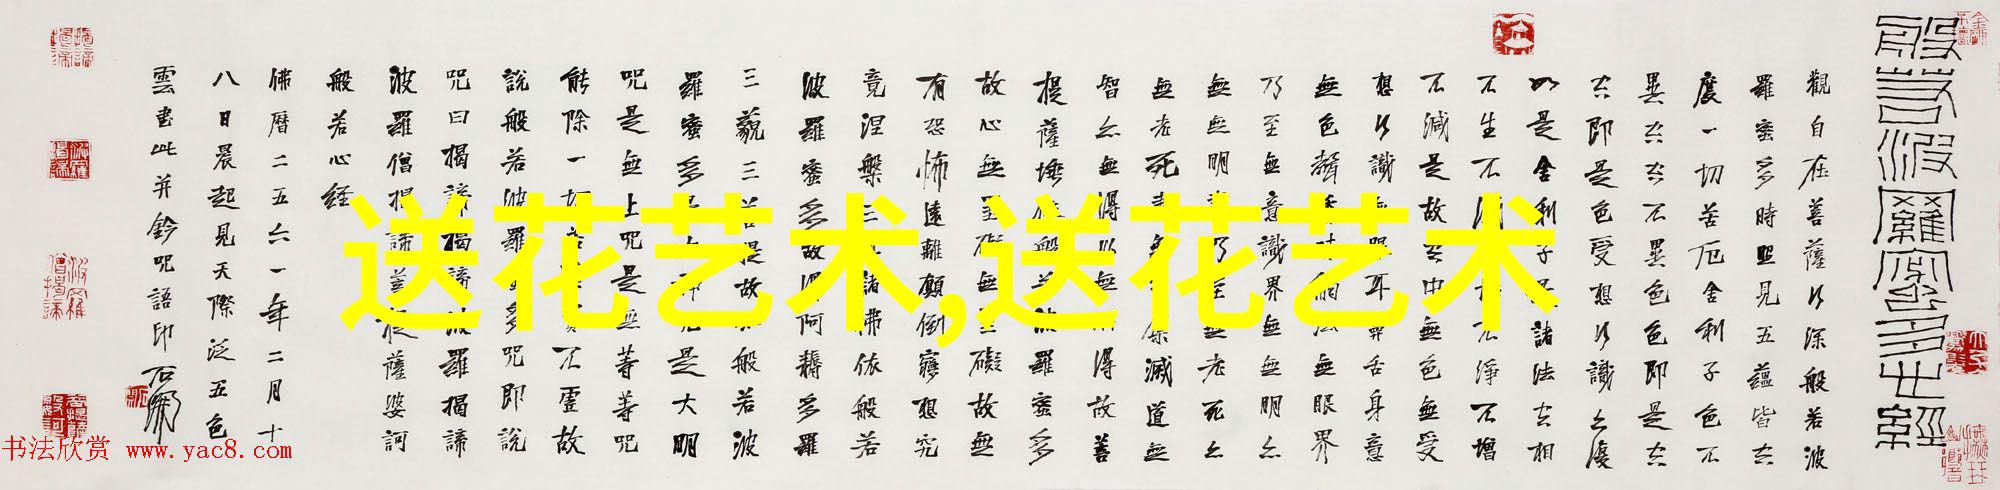 般若波羅蜜多心經
觀自在菩薩行深般若波
羅蜜多時照見五蘊皆空
度一切苦厄舍利子色不
異空空不異色色即是空
空即是色受想行識亦復
如是舍利子是諸法空相
不生不滅不垢不淨不增
不減是故空中無色無受
想行識無眼耳鼻舌身意
無色聲香味觸法無眼界
乃至無意識界無無明亦
無無明盡乃至無老死亦
無老死盡無苦集滅道無
智亦無得以無所得故菩
提薩埵依般若波羅蜜多
故心無罣礙無罣礙故無
有恐怖遠離顛倒夢想究
竟涅槃三世諸佛依般若
波羅蜜多故得阿耨多羅
三藐三菩提故知般若波
羅蜜多是大神咒是大明
咒是無上咒是無等等咒
能除一切苦真實不虛故
說般若波羅蜜多咒即說
咒曰揭諦揭諦波羅揭諦
波羅僧揭諦菩提薩婆訶
般若心経
佛曆二五六一年二月十
八日晨起見天際泛五色
雲書此并鈐咒語印 石開
送花艺术,送花艺术
书法欣赏 www.yac8.com